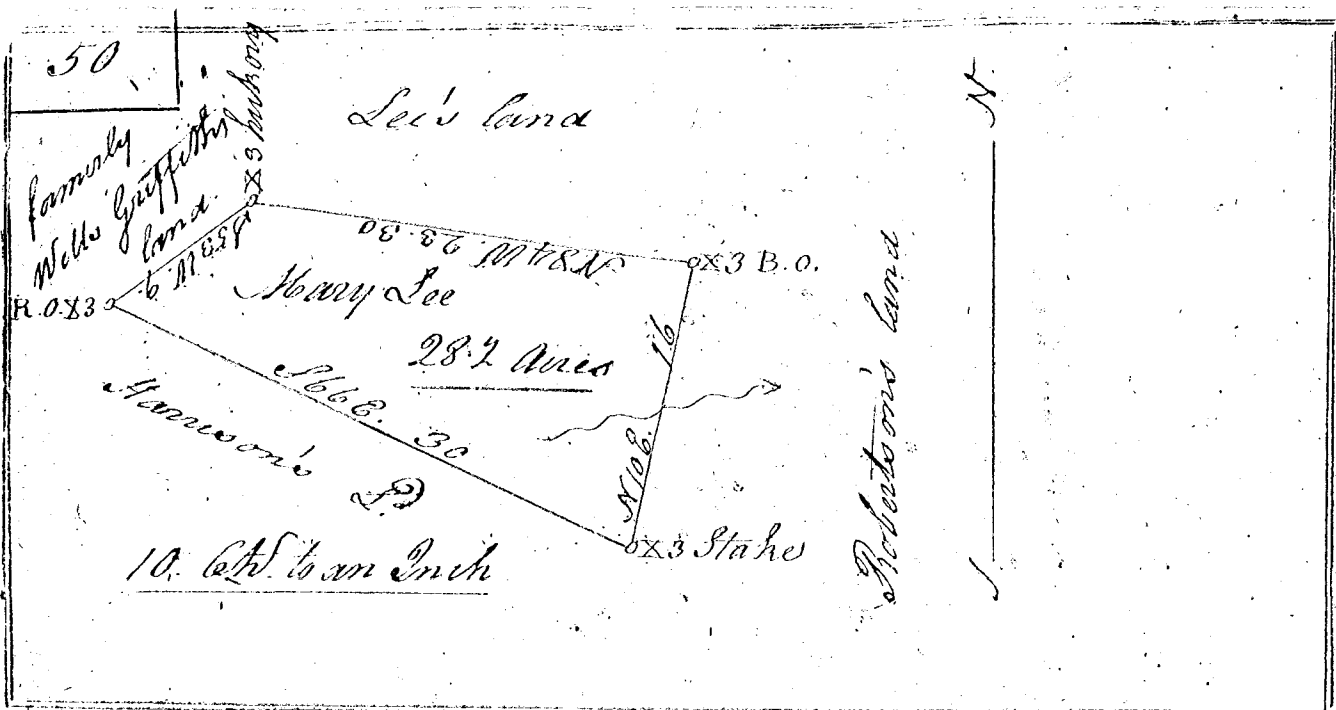 50
formerly
Wells Griffith's
land.
X3 hickory
Lee's land
N
S
S53W. 9
N84W. 23.30
X3 B.O.
R.O.X3
Mary Lee
28.2 Acres
16
N10E.
S66E. 30
Harrison's Ld
X3 Stake
Robertson's land
10. Ch. to an Inch